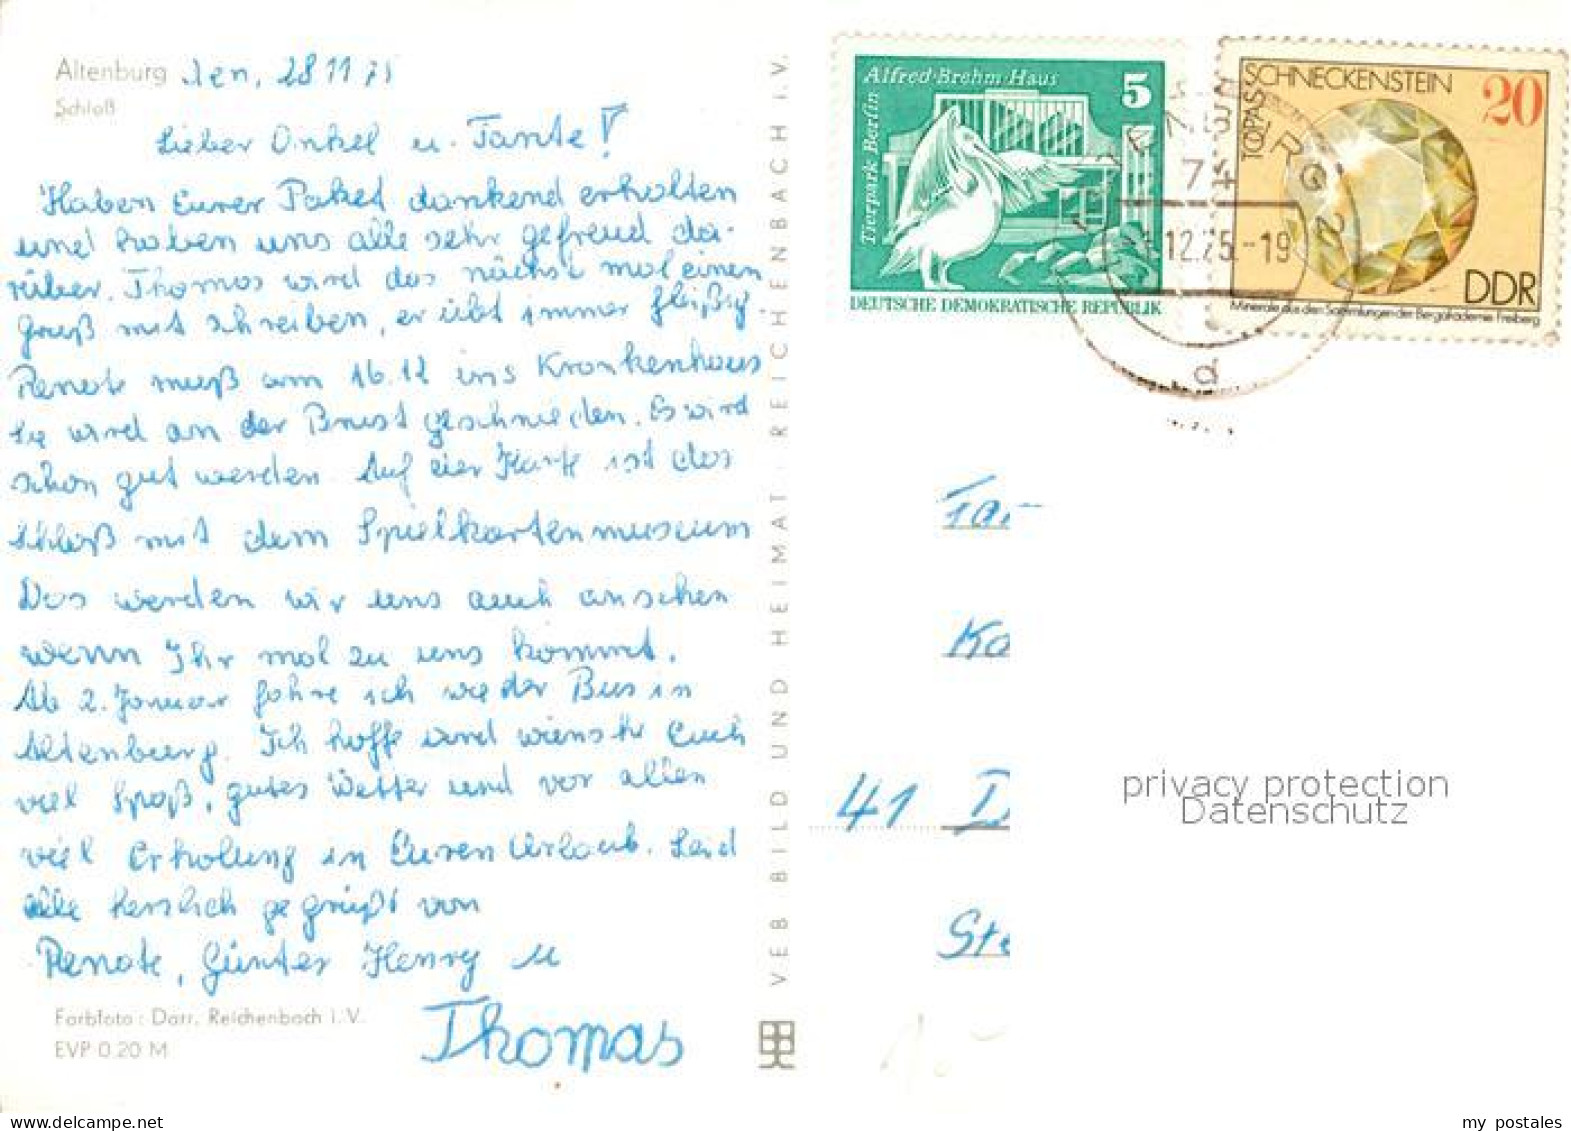 Altenburg den, 28 11 75
Schloß
Lieber Onkel u. Tante!
Haben Eurer Paket dankend erholten
und haben uns alle sehr gefreud da-
rüber. Thomas wird das nächste mal einen
Gruß mit schreiben, er übt immer fleißig.
Renate muß am 16.12 ins Krankenhaus
Sie wird an der Brust geschnieden. Es wird
schon gut werden. Auf der Karte ist das
Schloß mit dem Spielkartenmuseum
Das werden wir uns auch ansehen
wenn Ihr mal zu uns kommt.
Ab 2. Januar fahre ich wieder Bus in
Altenburg. Ich hoffe und wünsche Euch
viel Spaß, gutes Wetter und vor allen
viel Erholung in Euren Urlaub. Seid
alle herzlich gegrüßt von
Renate, Günter Henry u
Thomas
Farbfoto: Darr, Reichenbach i. V.
EVP 0.20 M
VEB BILD UND HEIMAT · REICHENBACH I. V.
Alfred-Brehm-Haus
5
Tierpark Berlin
DEUTSCHE DEMOKRATISCHE REPUBLIK
TOPAS SCHNECKENSTEIN
20
DDR
Minerale aus den Sammlungen der Bergakademie Freiberg
74
12.75-19
d
Ko
41
Ste
privacy protection
Datenschutz
1.-
my postales